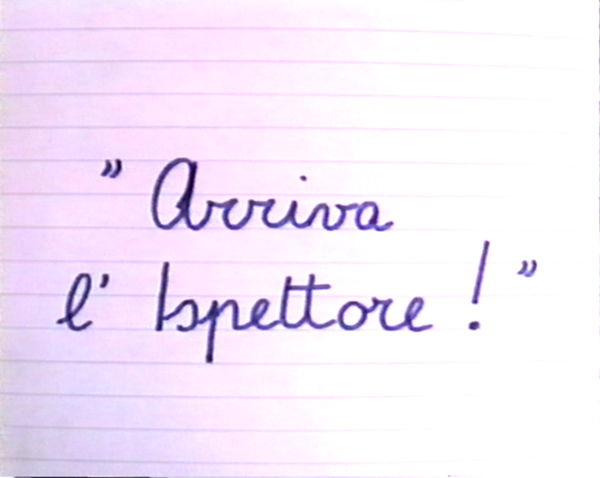 " Arriva
l' Ispettore ! "